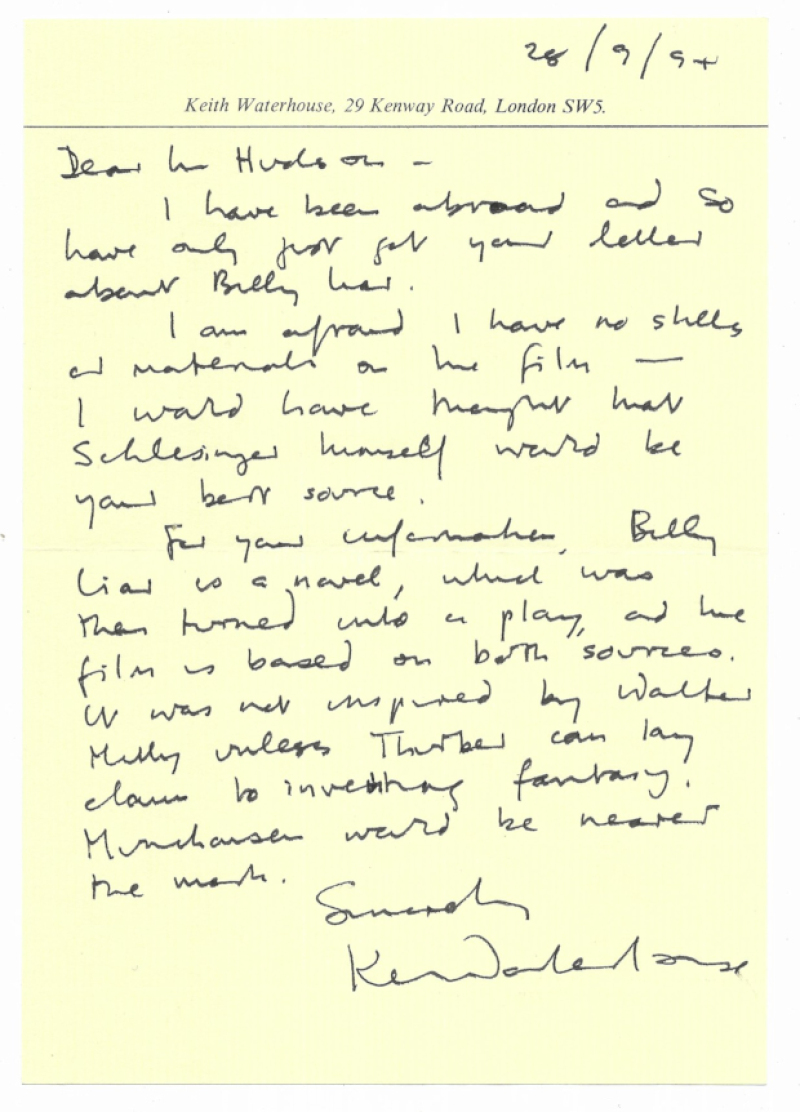 28/9/94
Keith Waterhouse, 29 Kenway Road, London SW5.
Dear Mr Hudson –
I have been abroad and so
have only just got your letter
about Billy Liar.
I am afraid I have no stills
or materials on the film —
I would have thought that
Schlesinger himself would be
your best source.
For your information, Billy
Liar is a novel, which was
then turned into a play, and the
film is based on both sources.
It was not inspired by Walter
Mitty unless Thurber can lay
claim to inventing fantasy.
Munchausen would be nearer
the mark.
Sincerely
Keith Waterhouse